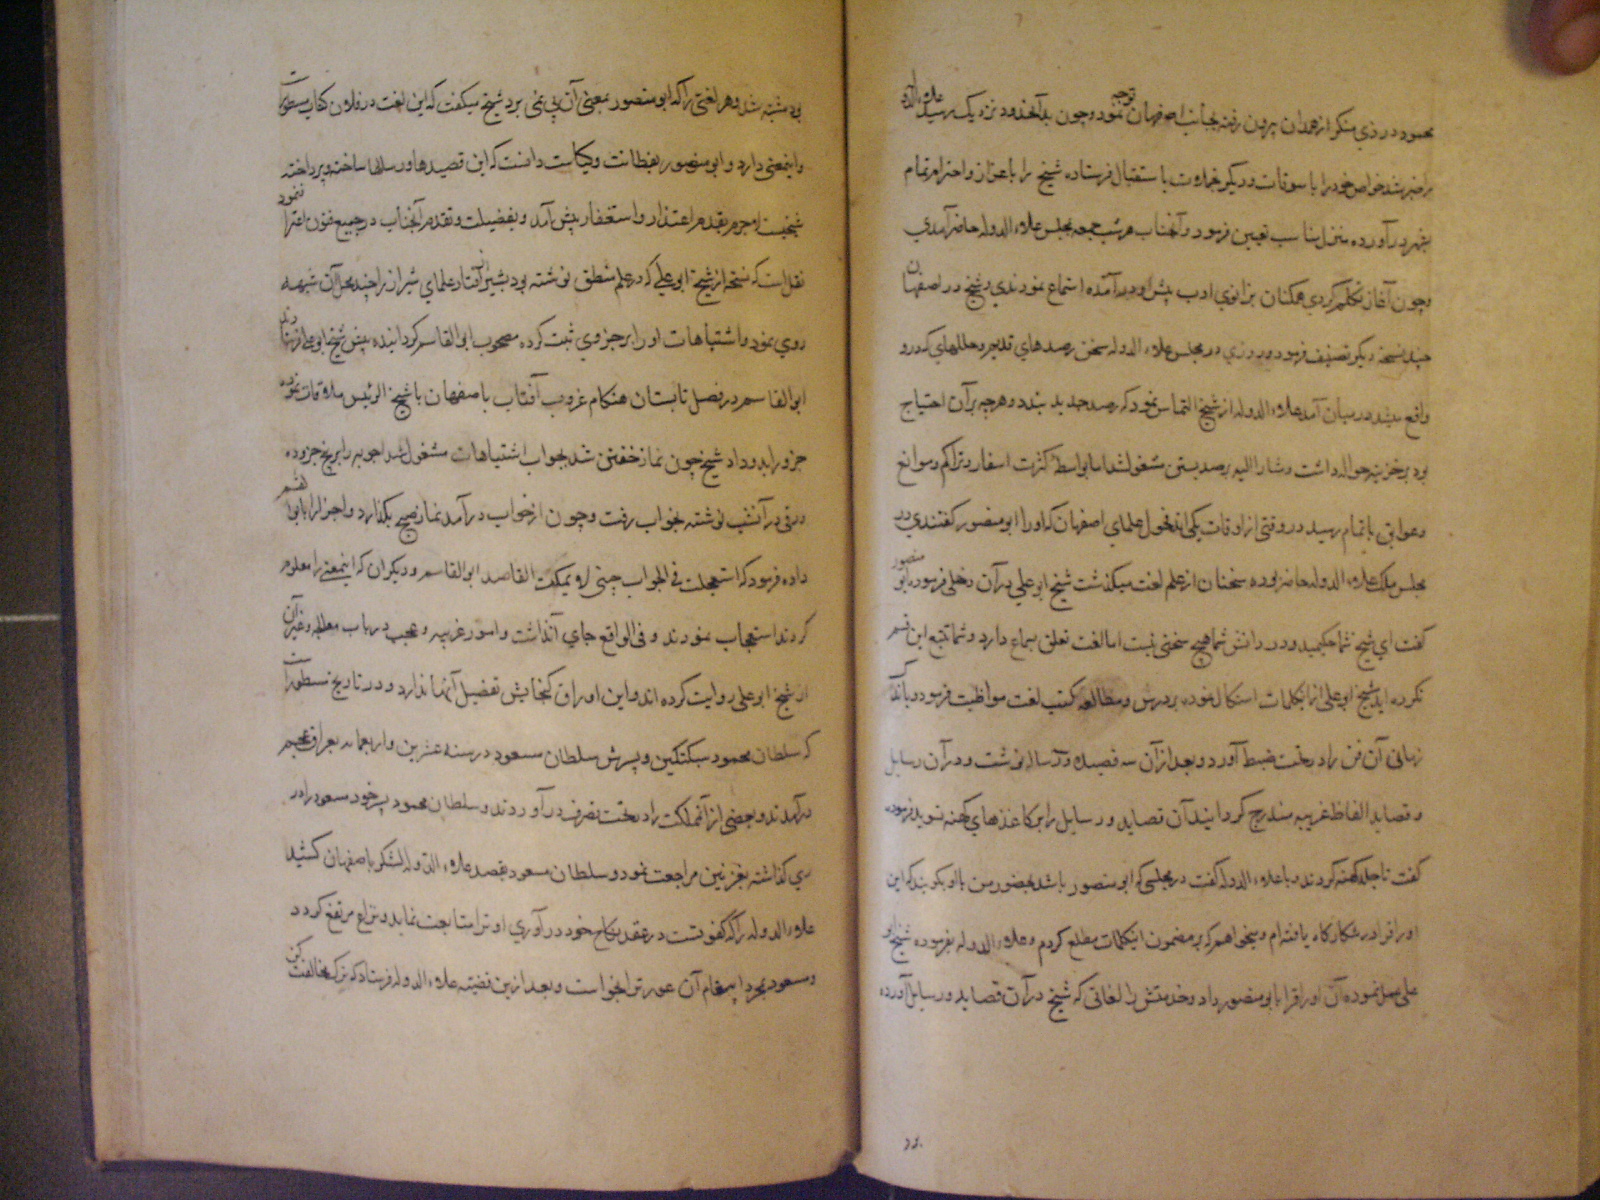 محمود در زي منكر از همدان بيرون رفته بجانب اصفهان توجه نمود و چون بدآنحدود نزديك رسيد علاء الدوله
را خبر شد خواص خود را با سوقات و ديكر بخدمات باستقبال فرستاده شيخ را باعزاز و احترام تمام
بشهر درآورده منزل مناسب تعيين فرمود و آنجناب هر شب جمعه بمجلس علاء الدوله حاضر آمدي
و چون آغاز تكلم كردي همكنان بزانوي ادب پيش او درآمده استماع نمودندي و شيخ در اصفهان
چند نسخه ديكر تصنيف فرمود و روزي در مجلس علاء الدوله سخن رصدهاي قديم و خللهاي كه درو
واقع شد در ميان آمد علاء الدوله از شيخ التماس نمود كه رصد جديد بندد و هرچه بر آن احتياج
بود بر خزينه حواله داشت و مشار اليه برصد بستن مشغول شد اما بواسطه كثرت اسفار و تراكم موانع
و عوايق باتمام نرسيد در وقتي از اوقات يكي از فحول علماي اصفهان كه او را ابو منصور كفتندي در
مجلس ملك علاء الدوله حاضر بوده سخنان از علم لغت ميكذشت شيخ ابو علي در آن دخلي فرمود ابو منصور
كفت اي شيخ شما حكيميد و در دانش شما هيچ سخني نيست اما لغت تعلق بسماع دارد و شما تتبع اين قسم
نكرده ايد شيخ ابو علي از اينكلمات استنكال نموده بدرس و مطالعه كتب لغت مواظبت فرمود و باندك
زماني آن فن را در تحت ضبط آورد و بعد از آن سه قصيده و سه رساله نوشت و در آن رسايل
و قصايد الفاظ غريبه مندرج كردانيد آن قصايد و رسايل را بر كاغذهاي كهنه تسويد فرموده
كفت تا جلد كهنه كردند و با علاء الدوله كفت در مجلسي كه ابو منصور باشد بحضور من با او بكوييد كه اين
اوراق را در شكاركاه يافته ام و ميخواهم كه بر مضمون اينكلمات مطلع كردم و علاء الدوله بفرموده شيخ ابو
علي عمل نموده آن اوراق را بابو منصور داد و خدمتش را لغاتي كه شيخ در آن قصايد و رسايل آورده
بود مشتبه شد و هر لغتي را كه ابو منصور بمعني آن پي نمي برد شيخ ميكفت كه اين لغت در فلان كتاب مسطور است
و اينمعني دارد و ابو منصور بفطانت و كياست دانست كه اين قصيدها و رسالها ساخته و پرداخته
شيخست لاجرم بقدم اعتذار و استغفار پيش آمد و بفضيلت و تقدم آنجناب در جميع فنون اعترا نمود
نقل است كه نسخه از شيخ ابو علي كه در علم منطق نوشته بود بشيراز افتاد علماي شيراز را چند محل آن شبهه
روي نمود و اشتباهات او را بر جزوي ثبت كرده مصحوب ابو القاسم كردانيده پيش شيخ ابو علي فرستادند
ابو القاسم در فصل تابستان هنكام غروب آفتاب باصفهان با شيخ الرئيس ملاقات نموده
جزو را بدو داد شيخ چون نماز خفتن شد بجواب اشتباهات مشغول شد اجوبه را بر پنج جزو ده
ورقي در آنشب نوشته بخواب رفت و چون از خواب درآمد نماز صبح بكذارد و اجزا را بابو القاسم
داده فرمود كه استعجلت في الجواب حتي لا يمكث القاصد ابو القاسم و ديكران كه اينمعني را معلوم
كردند استعجاب نمودند و في الواقع جاي آنداشت و امور غريبه و عجيب در باب معالجه و غير آن
از شيخ ابو علي روايت كرده اند و اين اوراق كنجايش تفضيل آنها ندارد و در تاريخ مسطور است
كه سلطان محمود سبكتكين و پسرش سلطان مسعود در سنه عشرين و اربعمائه بعراق عجم
درآمدند و بعضي از آنمملكت را در تحت تصرف درآوردند و سلطان محمود پسر خود مسعود را در
ري كذاشته بغزنين مراجعت نمود و سلطان مسعود بقصد علاء الدوله لشكر باصفهان كشيد
علاء الدوله را كه كفو تست در عقد نكاح خود درآوري او ترا متابعت نمايد و نزاع مرتفع كردد
و مسعود بمجرد پيغام آن عورت را بخواست و بعد ازين قضيه علاء الدوله فرستاد كه ترك مخالفت كن